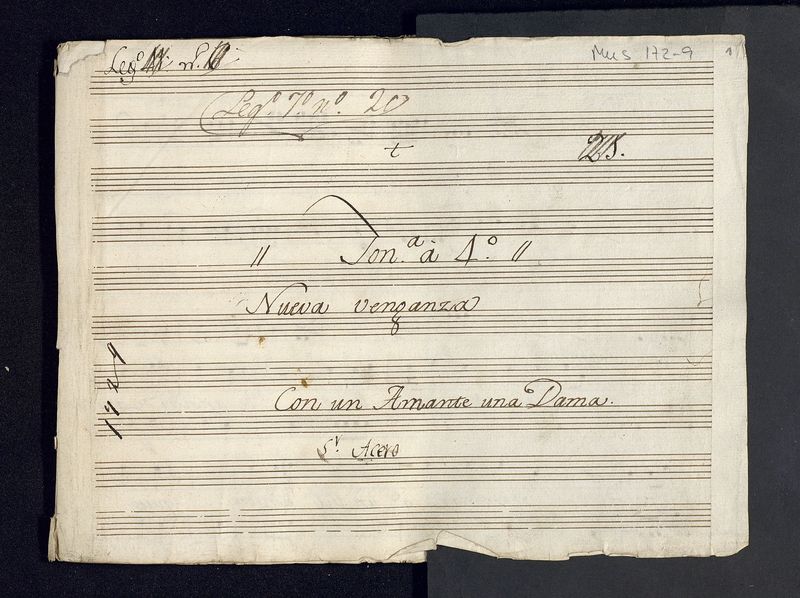 Leg.º nº.
Mus 172-9
1
Leg.º 7.º nº. 20
+
" Ton.ª à 4.º "
Nueva venganza
Con un Amante una Dama.
S.r Acero